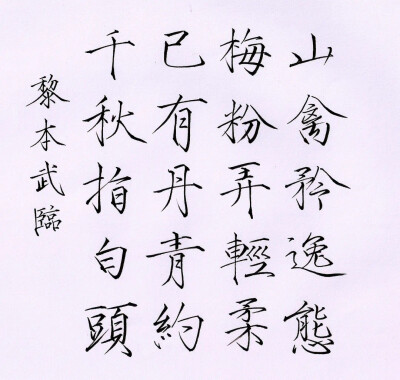 山禽矜逸態
梅粉弄輕柔
已有丹青約
千秋指白頭
黎本武臨